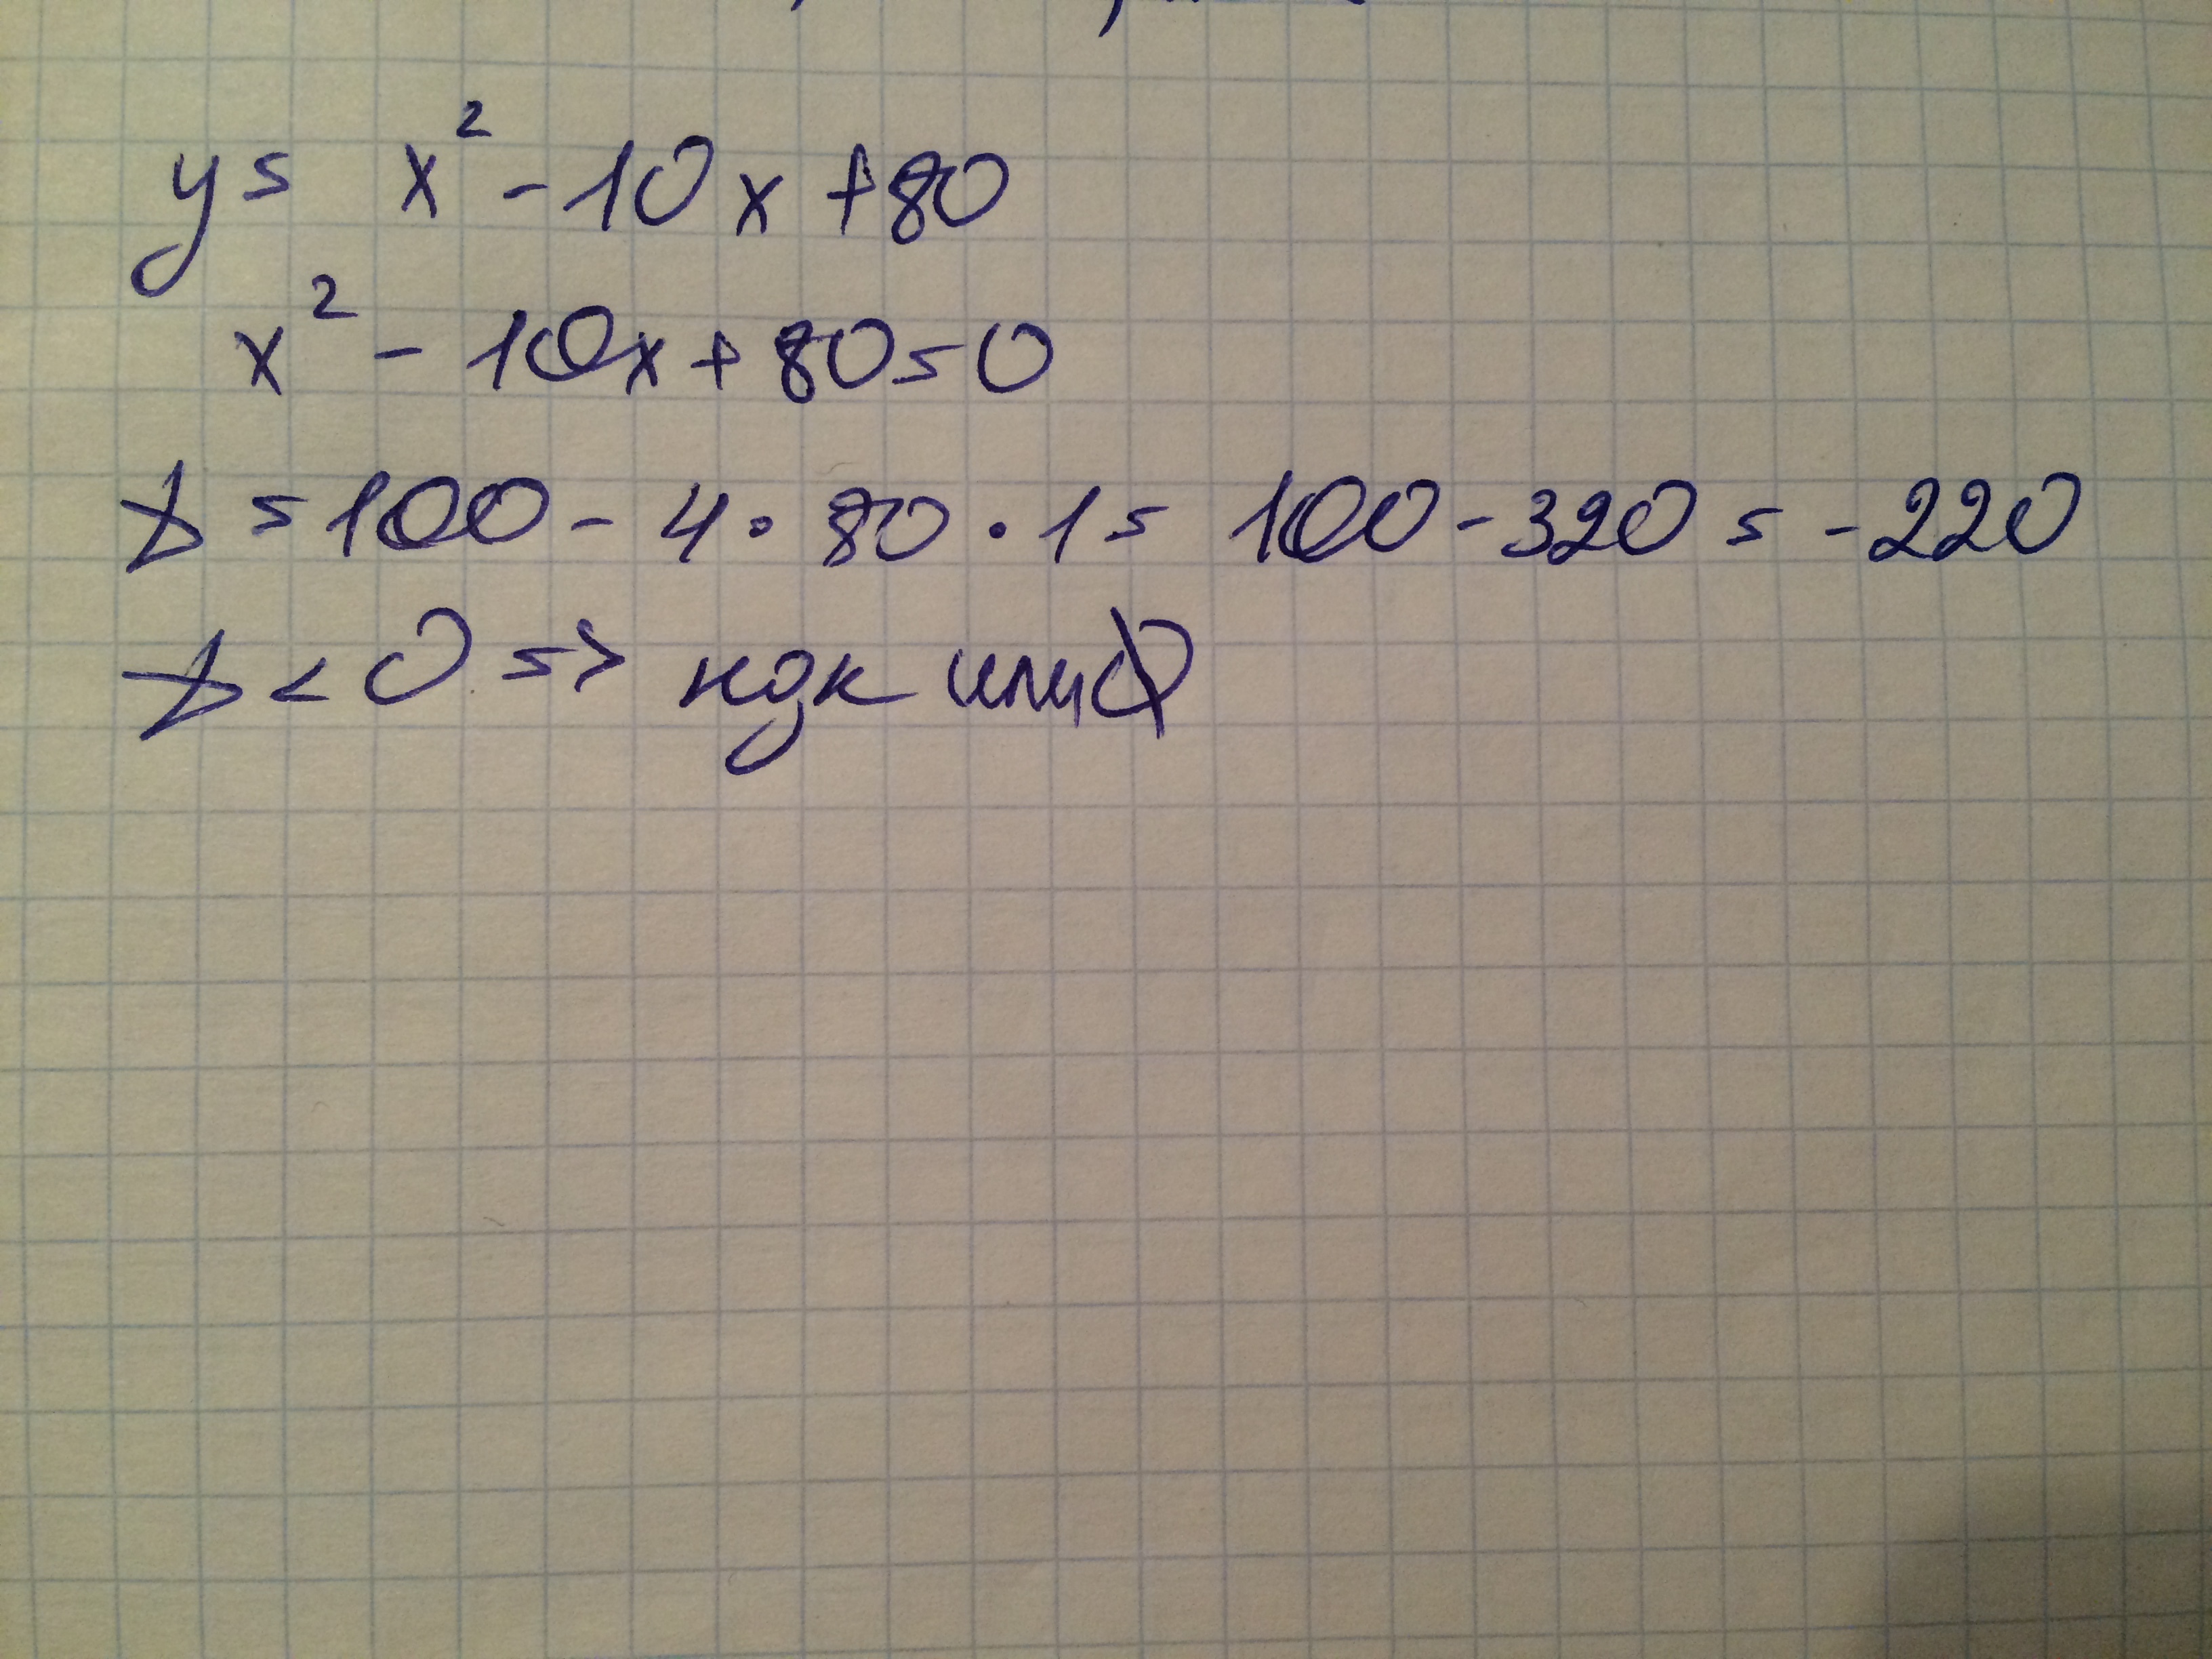 y = x² - 10x + 80
x² - 10x + 80 = 0
D = 100 - 4 · 80 · 1 = 100 - 320 = -220
D < 0 => ндк или ∅